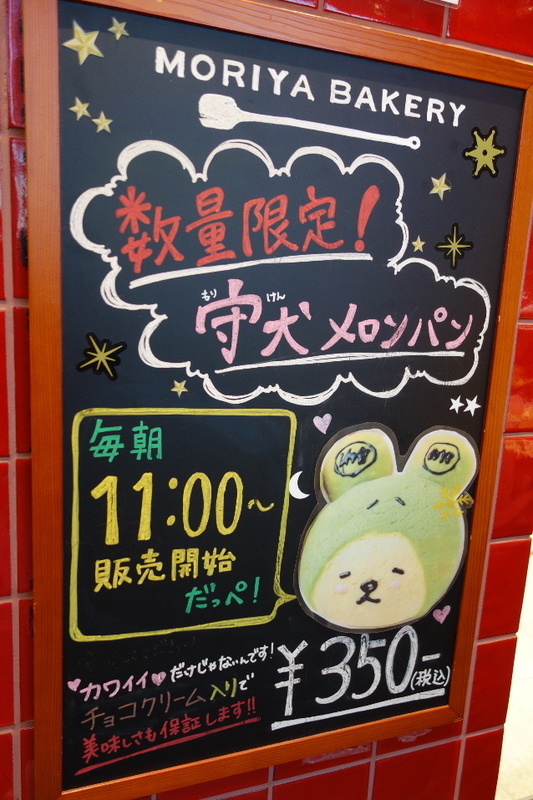 MORIYA BAKERY
数量限定!
もり けん
守犬 メロンパン
毎朝
11:00~
販売開始
だっぺ!
カワイイだけじゃないんです!
チョコクリーム入りで
美味しさも保証します!!
¥350-(税込)